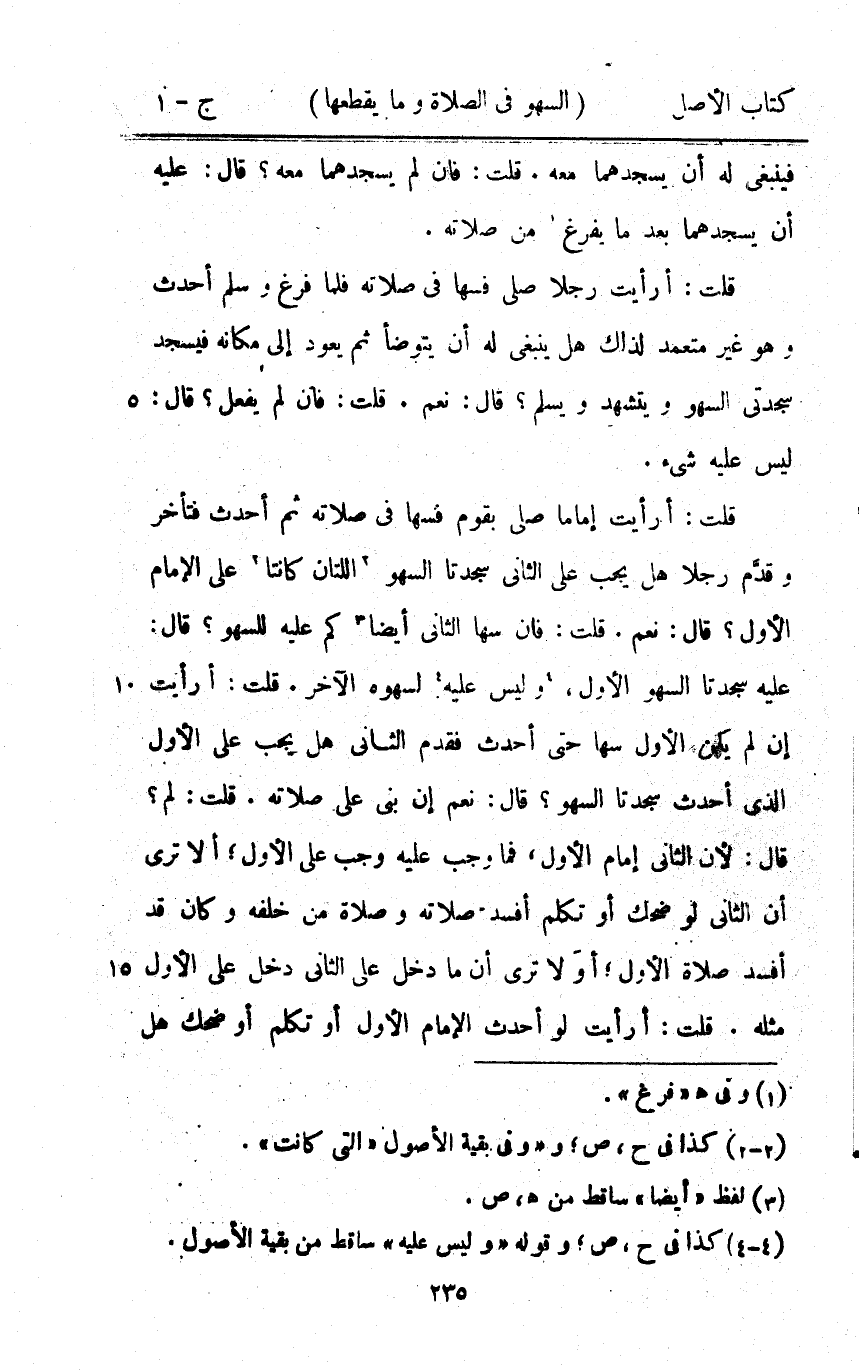 كتاب الأصل (السهو فى الصلاة و ما يقطعها) ج - ١
فينبغى له أن يسجدهما معه . قلت : فان لم يسجدهما معه ؟ قال : عليه
أن يسجدهما بعد ما يفرغ ١ من صلاته .
قلت : أ رأيت رجلا صلى فسها فى صلاته فلما فرغ و سلم أحدث
و هو غير متعمد لذاك هل ينبغى له أن يتوضأ ثم يعود إلى مكانه فيسجد
سجدتى السهو و يتشهد و يسلم ؟ قال : نعم . قلت : فان لم يفعل ؟ قال : ٥
ليس عليه شىء .
قلت : أ رأيت إماما صلى بقوم فسها فى صلاته ثم أحدث فتأخر
و قدَّم رجلا هل يجب على الثانى سجدتا السهو ٢اللتان كانتا٢ على الإمام
الأول ؟ قال : نعم . قلت : فان سها الثانى أيضا٣ كم عليه للسهو ؟ قال :
عليه سجدتا السهو الأول ، ٤و ليس عليه٤ لسهوه الآخر . قلت : أ رأيت ١٠
إن لم يكن الأول سها حتى أحدث فقدم الثانى هل يجب على الأول
الذى أحدث سجدتا السهو ؟ قال : نعم إن بنى على صلاته . قلت : لم ؟
قال : لأن الثانى إمام الأول ، فما وجب عليه وجب على الأول ؛ أ لا ترى
أن الثانى لو ضحك أو تكلم أفسد صلاته و صلاة من خلفه و كان قد
أفسد صلاة الأول ؛ أ وَ لا ترى أن ما دخل على الثانى دخل على الأول ١٥
مثله . قلت : أ رأيت لو أحدث الإمام الأول أو تكلم أو ضحك هل
(١) و فى ه « فرغ » .
(٢-٢) كذا فى ح ، ص ؛ و « و فى بقية الأصول « التى كانت » .
(٣) لفظ « أيضا » ساقط من ه ، ص .
(٤-٤) كذا فى ح ، ص ؛ و قوله « و ليس عليه » ساقط من بقية الأصول .
٢٣٥